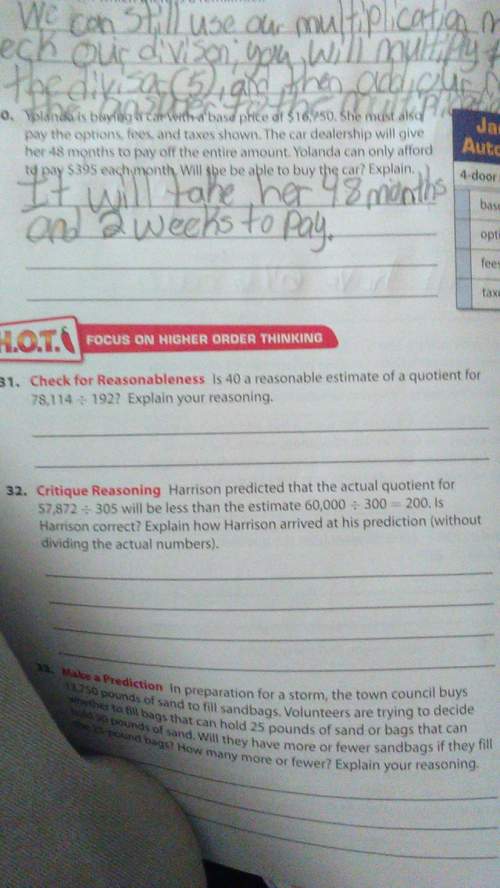 We can still use our multiplication
ech our divison; you will multiply
the divisor (5), and then add our
the answer to the
0. Yolanda is buying a car with a base price of $16,750. She must also
pay the options, fees, and taxes shown. The car dealership will give
her 48 months to pay off the entire amount. Yolanda can only afford
to pay $395 each month. Will she be able to buy the car? Explain.
It will take her 48 months
and 2 weeks to pay.
Ja
Auto
4-door
base
opti
fees
taxe
H.O.T. FOCUS ON HIGHER ORDER THINKING
31. Check for Reasonableness Is 40 a reasonable estimate of a quotient for
78,114 ÷ 192? Explain your reasoning.
32. Critique Reasoning Harrison predicted that the actual quotient for
57,872 ÷ 305 will be less than the estimate 60,000 ÷ 300 = 200. Is
Harrison correct? Explain how Harrison arrived at his prediction (without
dividing the actual numbers).
33. Make a Prediction In preparation for a storm, the town council buys
13,750 pounds of sand to fill sandbags. Volunteers are trying to decide
whether to fill bags that can hold 25 pounds of sand or bags that can
hold 50 pounds of sand. Will they have more or fewer sandbags if they fill
the pound bags? How many more or fewer? Explain your reasoning.